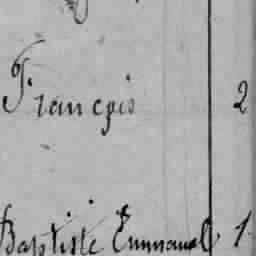 François 2
Baptiste Emmanuel 1